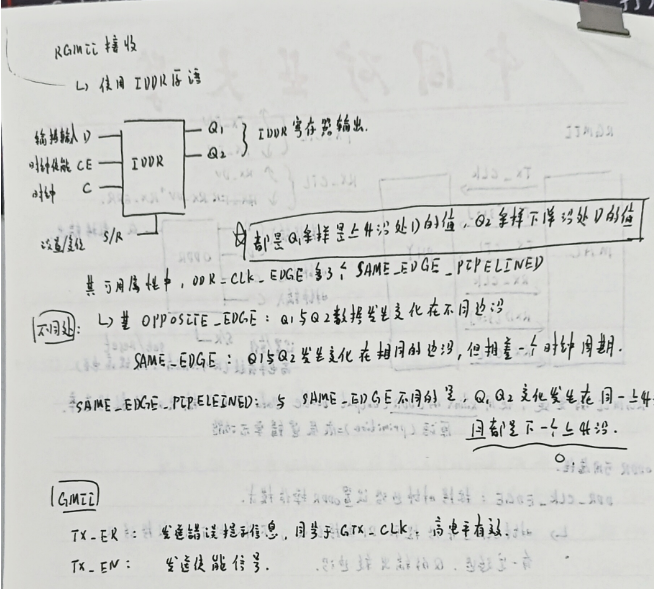 RGMII 接收
↳ 使用 IDDR 原语
数据输入 D
时钟使能 CE
时钟 C
IDDR
Q1
Q2
} IDDR 寄存器输出.
设置/复位 S/R
☆ 都是 Q1 采样是上升沿处 D 的值, Q2 采样下降沿处 D 的值
其可用属性中, DDR_CLK_EDGE 多了个 SAME_EDGE_PIPELINED
不同处: ↳ 其 OPPOSITE_EDGE: Q1与Q2数据发生变化在不同边沿
SAME_EDGE: Q1与Q2发生变化在相同的边沿, 但相差一个时钟周期.
SAME_EDGE_PIPELEINED: 与 SAME_EDGE 不同的是, Q1 Q2 变化发生在同一上升
同都是下一个上升沿.
GMII
TX_ER: 发送错误提示信息, 同步于 GTX_CLK, 高电平有效.
TX_EN: 发送使能信号.